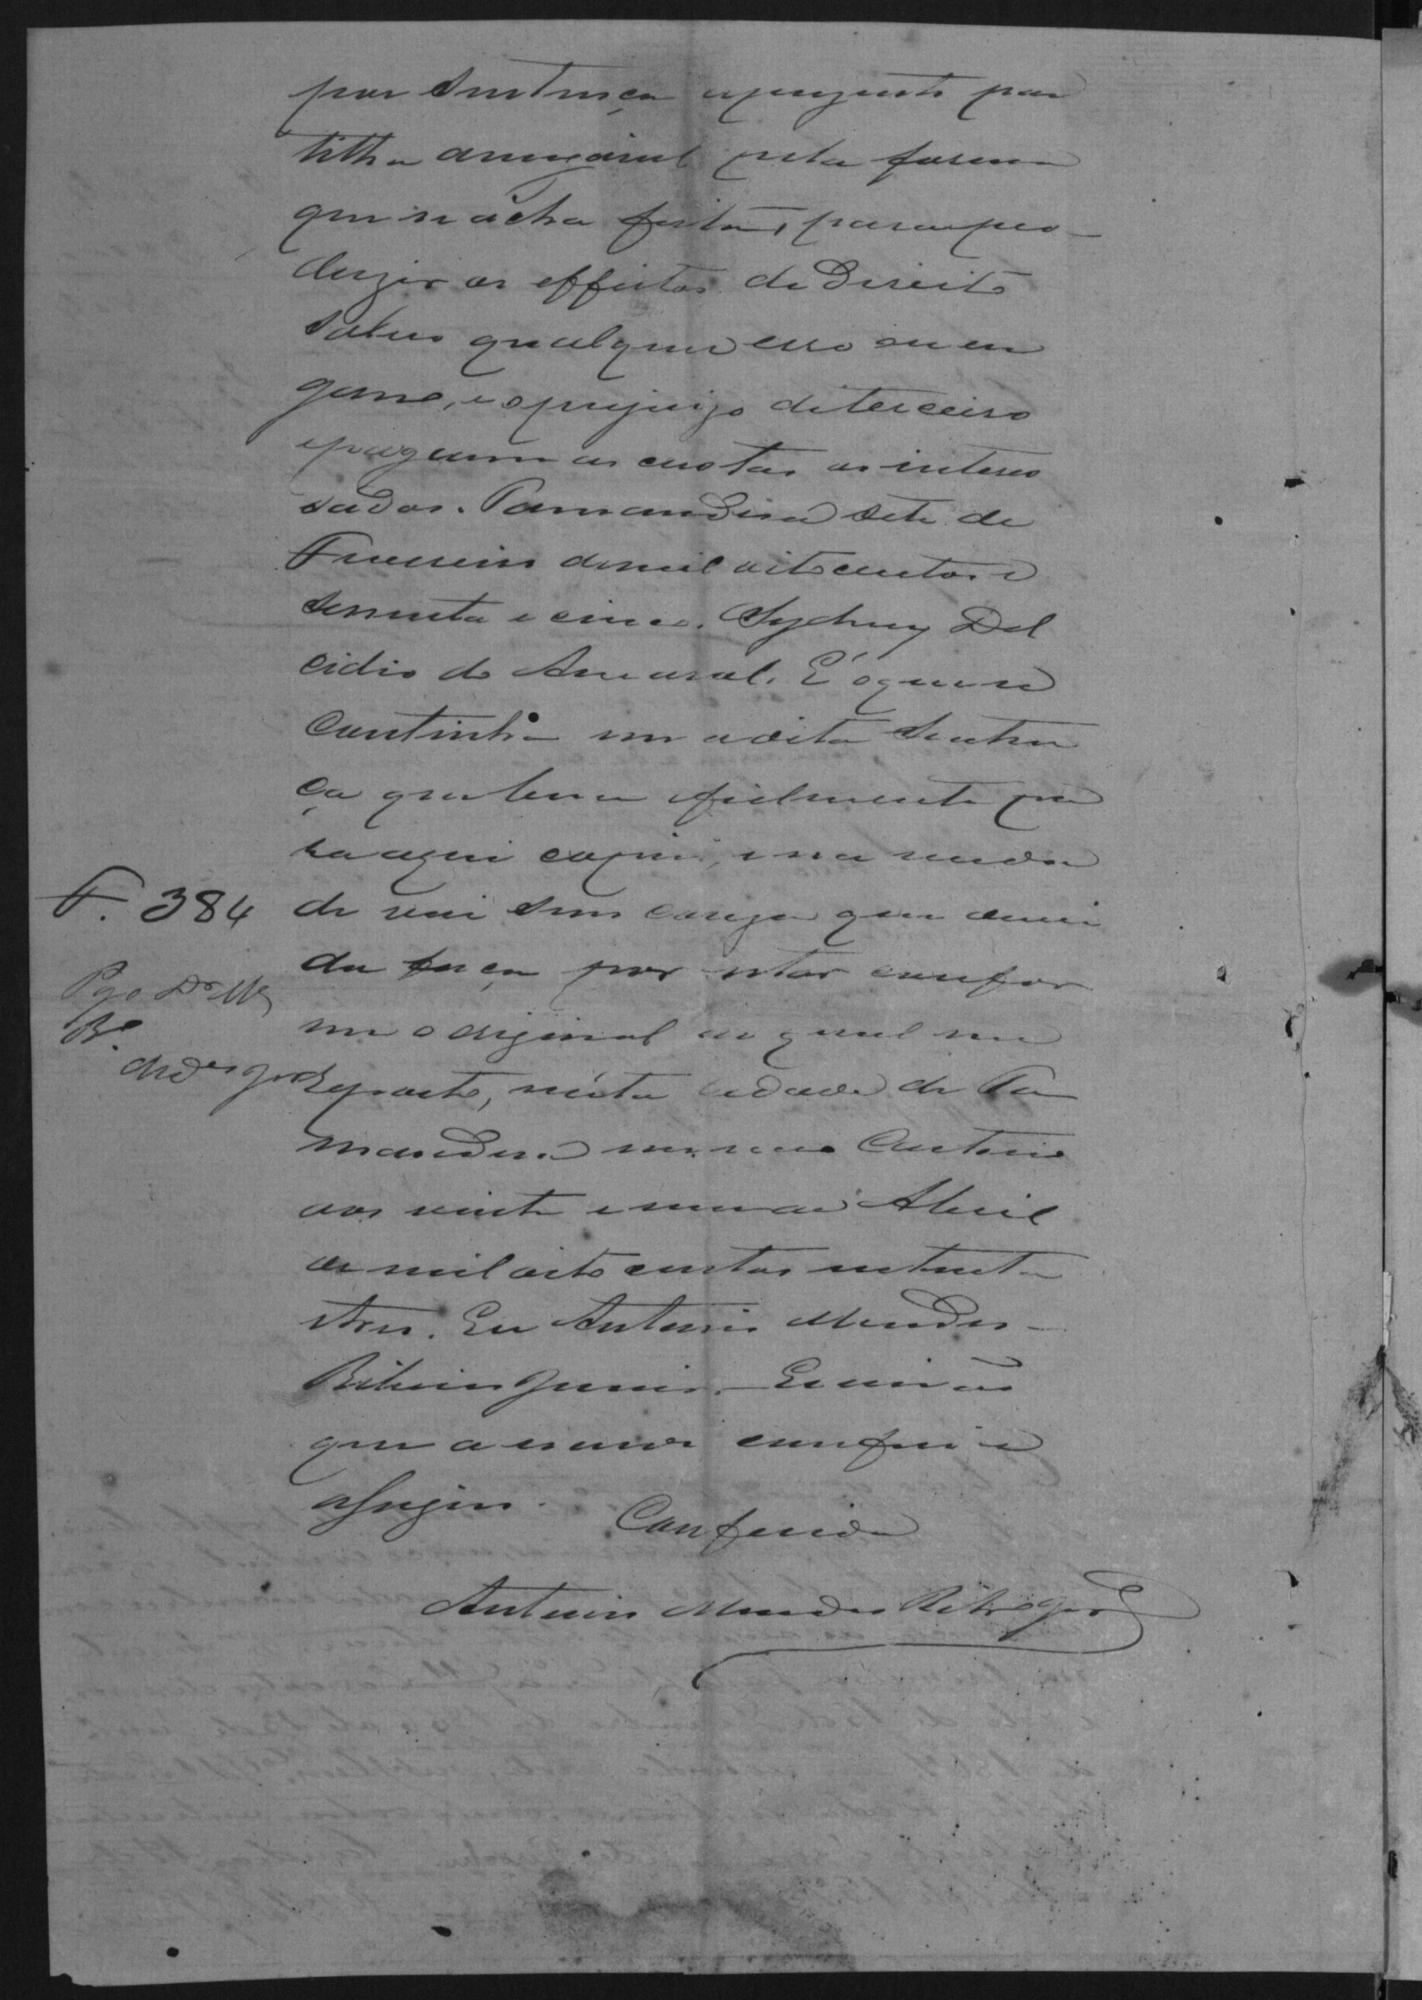 por sentença a presente par
tilha amigavel pela forma
que se acha feita, para pro-
duzir os effeitos de Direito
salvo qualquer erro ou en
gano, e o prejuizo de terceiro
e paguem as custas os interes
sados. Parnandiva sete de
Fevereiro de mil oito centos e
sessenta e cinco. Sydney Del
cidio do Amaral. É o que se
continha em a dita Senten
ça que bem e fielmente pa
ra aqui copiei, e na verda
de vai sem cousa que duvi
da faça por estar confor
me o original ao qual me
reporto, nésta cidade de
meu Cartorio
aos vinte e um de Abril
de mil oito centos setenta
e tres. Eu Antonio Mendes
Ribeiro Junior Escrivão
que a escrevi conferi e
assignei.
Conferida
Antonio Mendes Ribrº Jor
F. 384
Pg. o